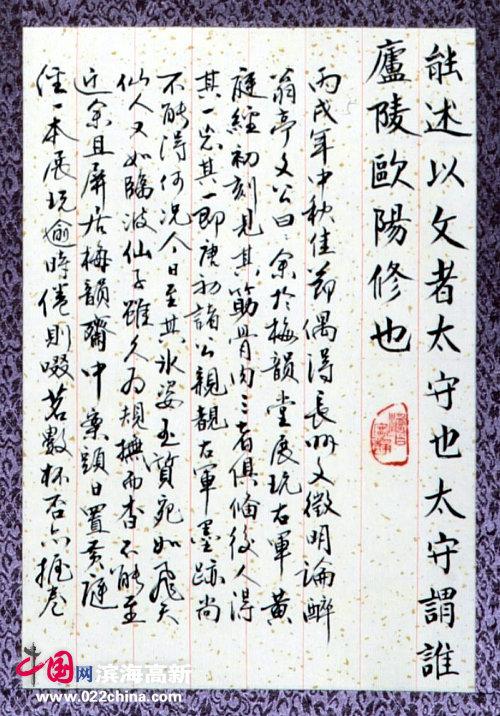 能述以文者太守也太守謂誰
廬陵歐陽修也
丙戌年中秋佳節偶得長州文徵明論醉
翁亭文公曰余於梅韻堂展玩右軍黃
庭經初刻見其筋骨肉三者俱備後人得
其一其一即唐初諸公親觀右軍墨跡尚
不能得何況今日至其冰姿玉質宛如飛天
仙人又如臨波仙子雖久為規撫而杳不能至
近余且屏居梅韻齋中案頭日置黃庭
經一本展玩逾時倦則啜茗數杯否亦握卷
中国网滨海高新
www.022china.com